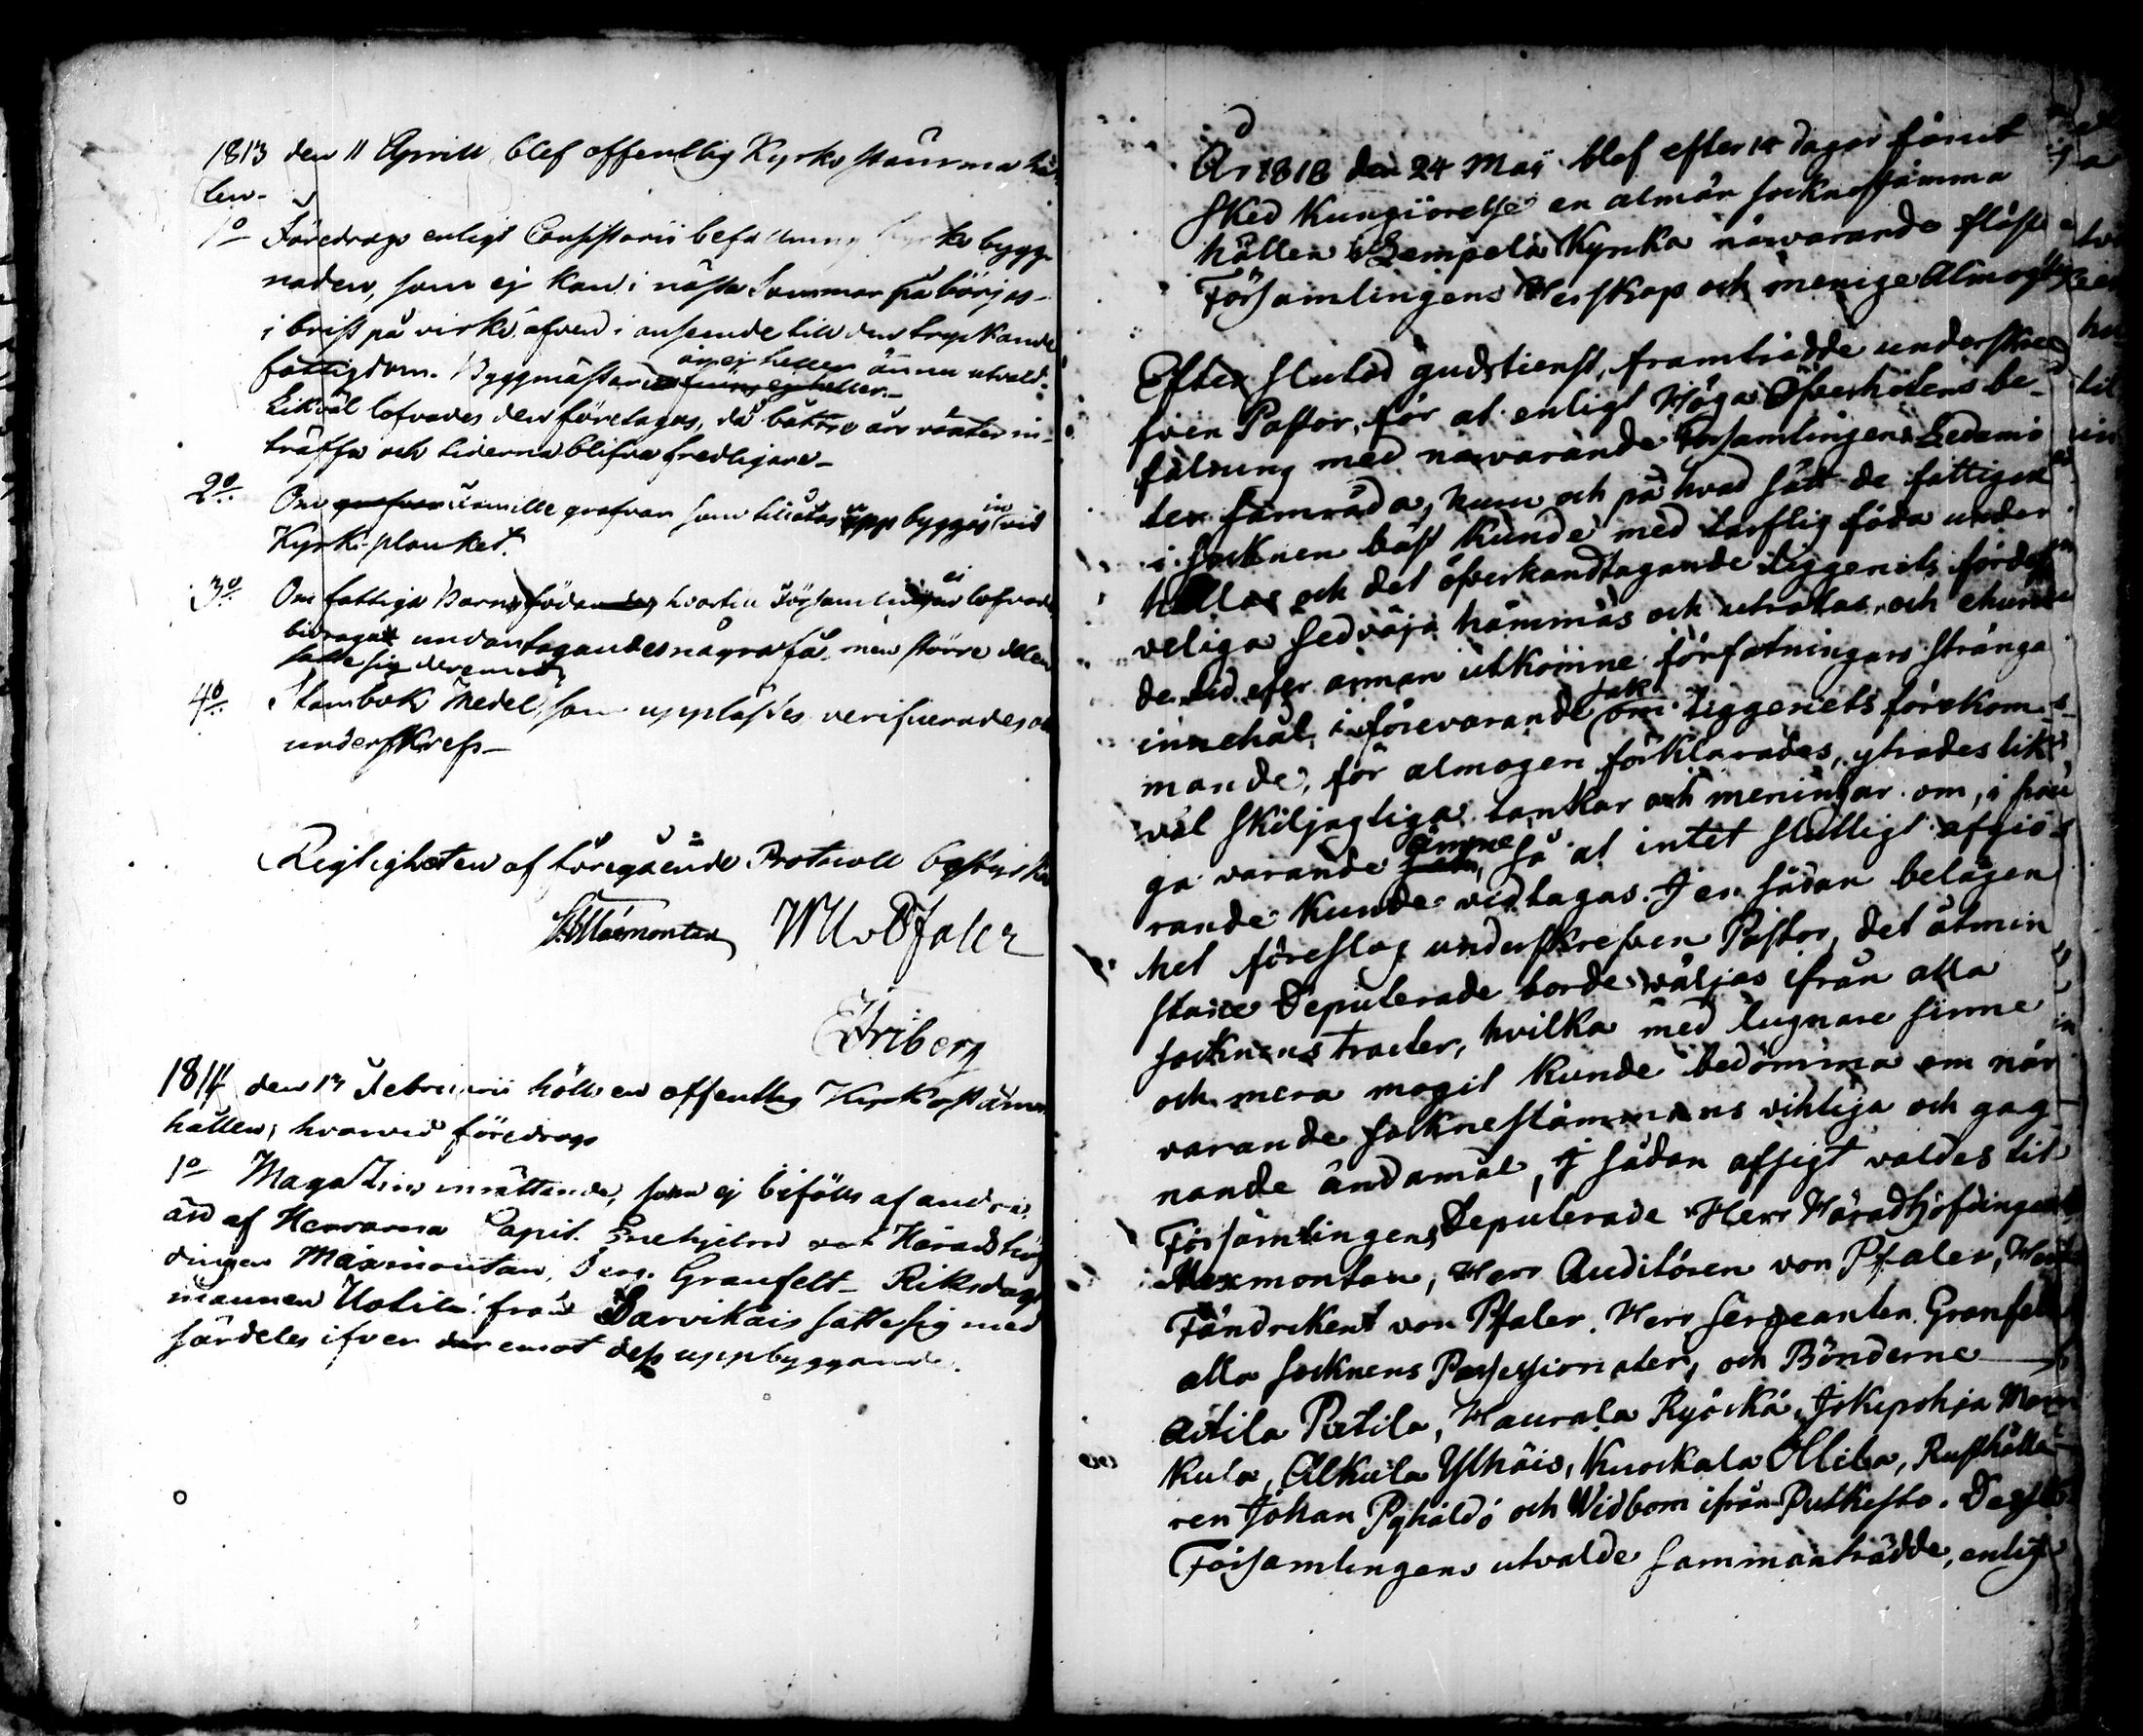 1813 den 11 Aprill blef offentlig Kyrko stämma hål
len.
1o Föredrogs enligt Consistorii befallning Kyrko bygg-
naden, som ej kan i nästa Sommar påbörjas
i brist på virke äfven i anseende till den tryckande
fattigdom. Byggmästare är ej heller ännu utvald.
Likväl lofvades den företagas, då bättre år väntas in-
träffa och tiderna blifva fredligare.
2o Om familie grafvar som tillåtas uppbyggas invid
Kyrkoplanket.
3o Om fattiga Barns födande, hvartill Församlingen ei lofvade
bidraga undantagandes några få. men större delen
satte sig deremot
4o Stambok Medel, som upplästes verificerades och
underskrefs
Rigtigheten af föregående Protocoll bestyrka
Maxmontan W U v Pfaler
E Friberg
1814 den 13 Februarii hölts en offentlig Kyrkostämma
hållen, hvarvid föredrogs
1o Magazins inrättande, som ej bifölls af andra
än af Herrarna Capit. Enehjelm och Häradshöf
dingen Maxmontan, Serg. Granfelt. Riksdags
mannen Uotila från Sarvikais satte sig med
särdeles ifver deremot dess uppbyggande.
År 1818 den 24 Maij blef efter 14 dagar förut
sked Kungiörelse en almän sockne stämma
hållen i Lempela Kyrka närvarande fläste
Församlingens Herskap och menige Almoge
Efter slutad gudstienst, framträdde underskre
fven Pastor, för at enligt Höga Öfverhetens be-
falning med närvarande Församlingens Ledamö
ter samråda, huru och på hvad sätt de fattige
i Socknen bäst kunde med tarflig föda under
hållas och det öfverhandtagande Tiggeriets förderf
veliga sedvaja hämmas och utrotas, och ehuru
de tid efter annan utkomne författningars stränga
innehål, i förevarande sak Tiggeriets förekom-
mande, för almogen förklarades, ytrades lik
väl skiljagtiga tankar och meningar om, i frå
ga varande ämne, så at intet slutligt afgiö-
rande kunde vidtagas. I en sådan belägen
het föreslog underskrefven Pastor, det åtmin
stone Deputerade borde väljas ifrån alla
socknens tracter, hvilka med lugnare sinne
och mera mogit kunde bedömma om när
varande socknestämmans viktiga och gag
nande ändamål, I sådan afsigt valdes til
Församlingens Deputerade Herr Häradhöfdingen
Maxmontan, Herr Auditören von Pfaler, Herr
Fändriken von Pfaler. Herr Sergeanten Granfelt
alla socknens Possessionater, och Bönderne
Aitila Pietila, Haurala Ryöckä, Jokipohja Mar
kula, Alkula Ylhäis, Kuockala Ollila, Rusthålla
ren Johan Pyhäldö och Widbom ifrån Putkisto. Desse
Församlingens utvalde sammanträdde, enligt